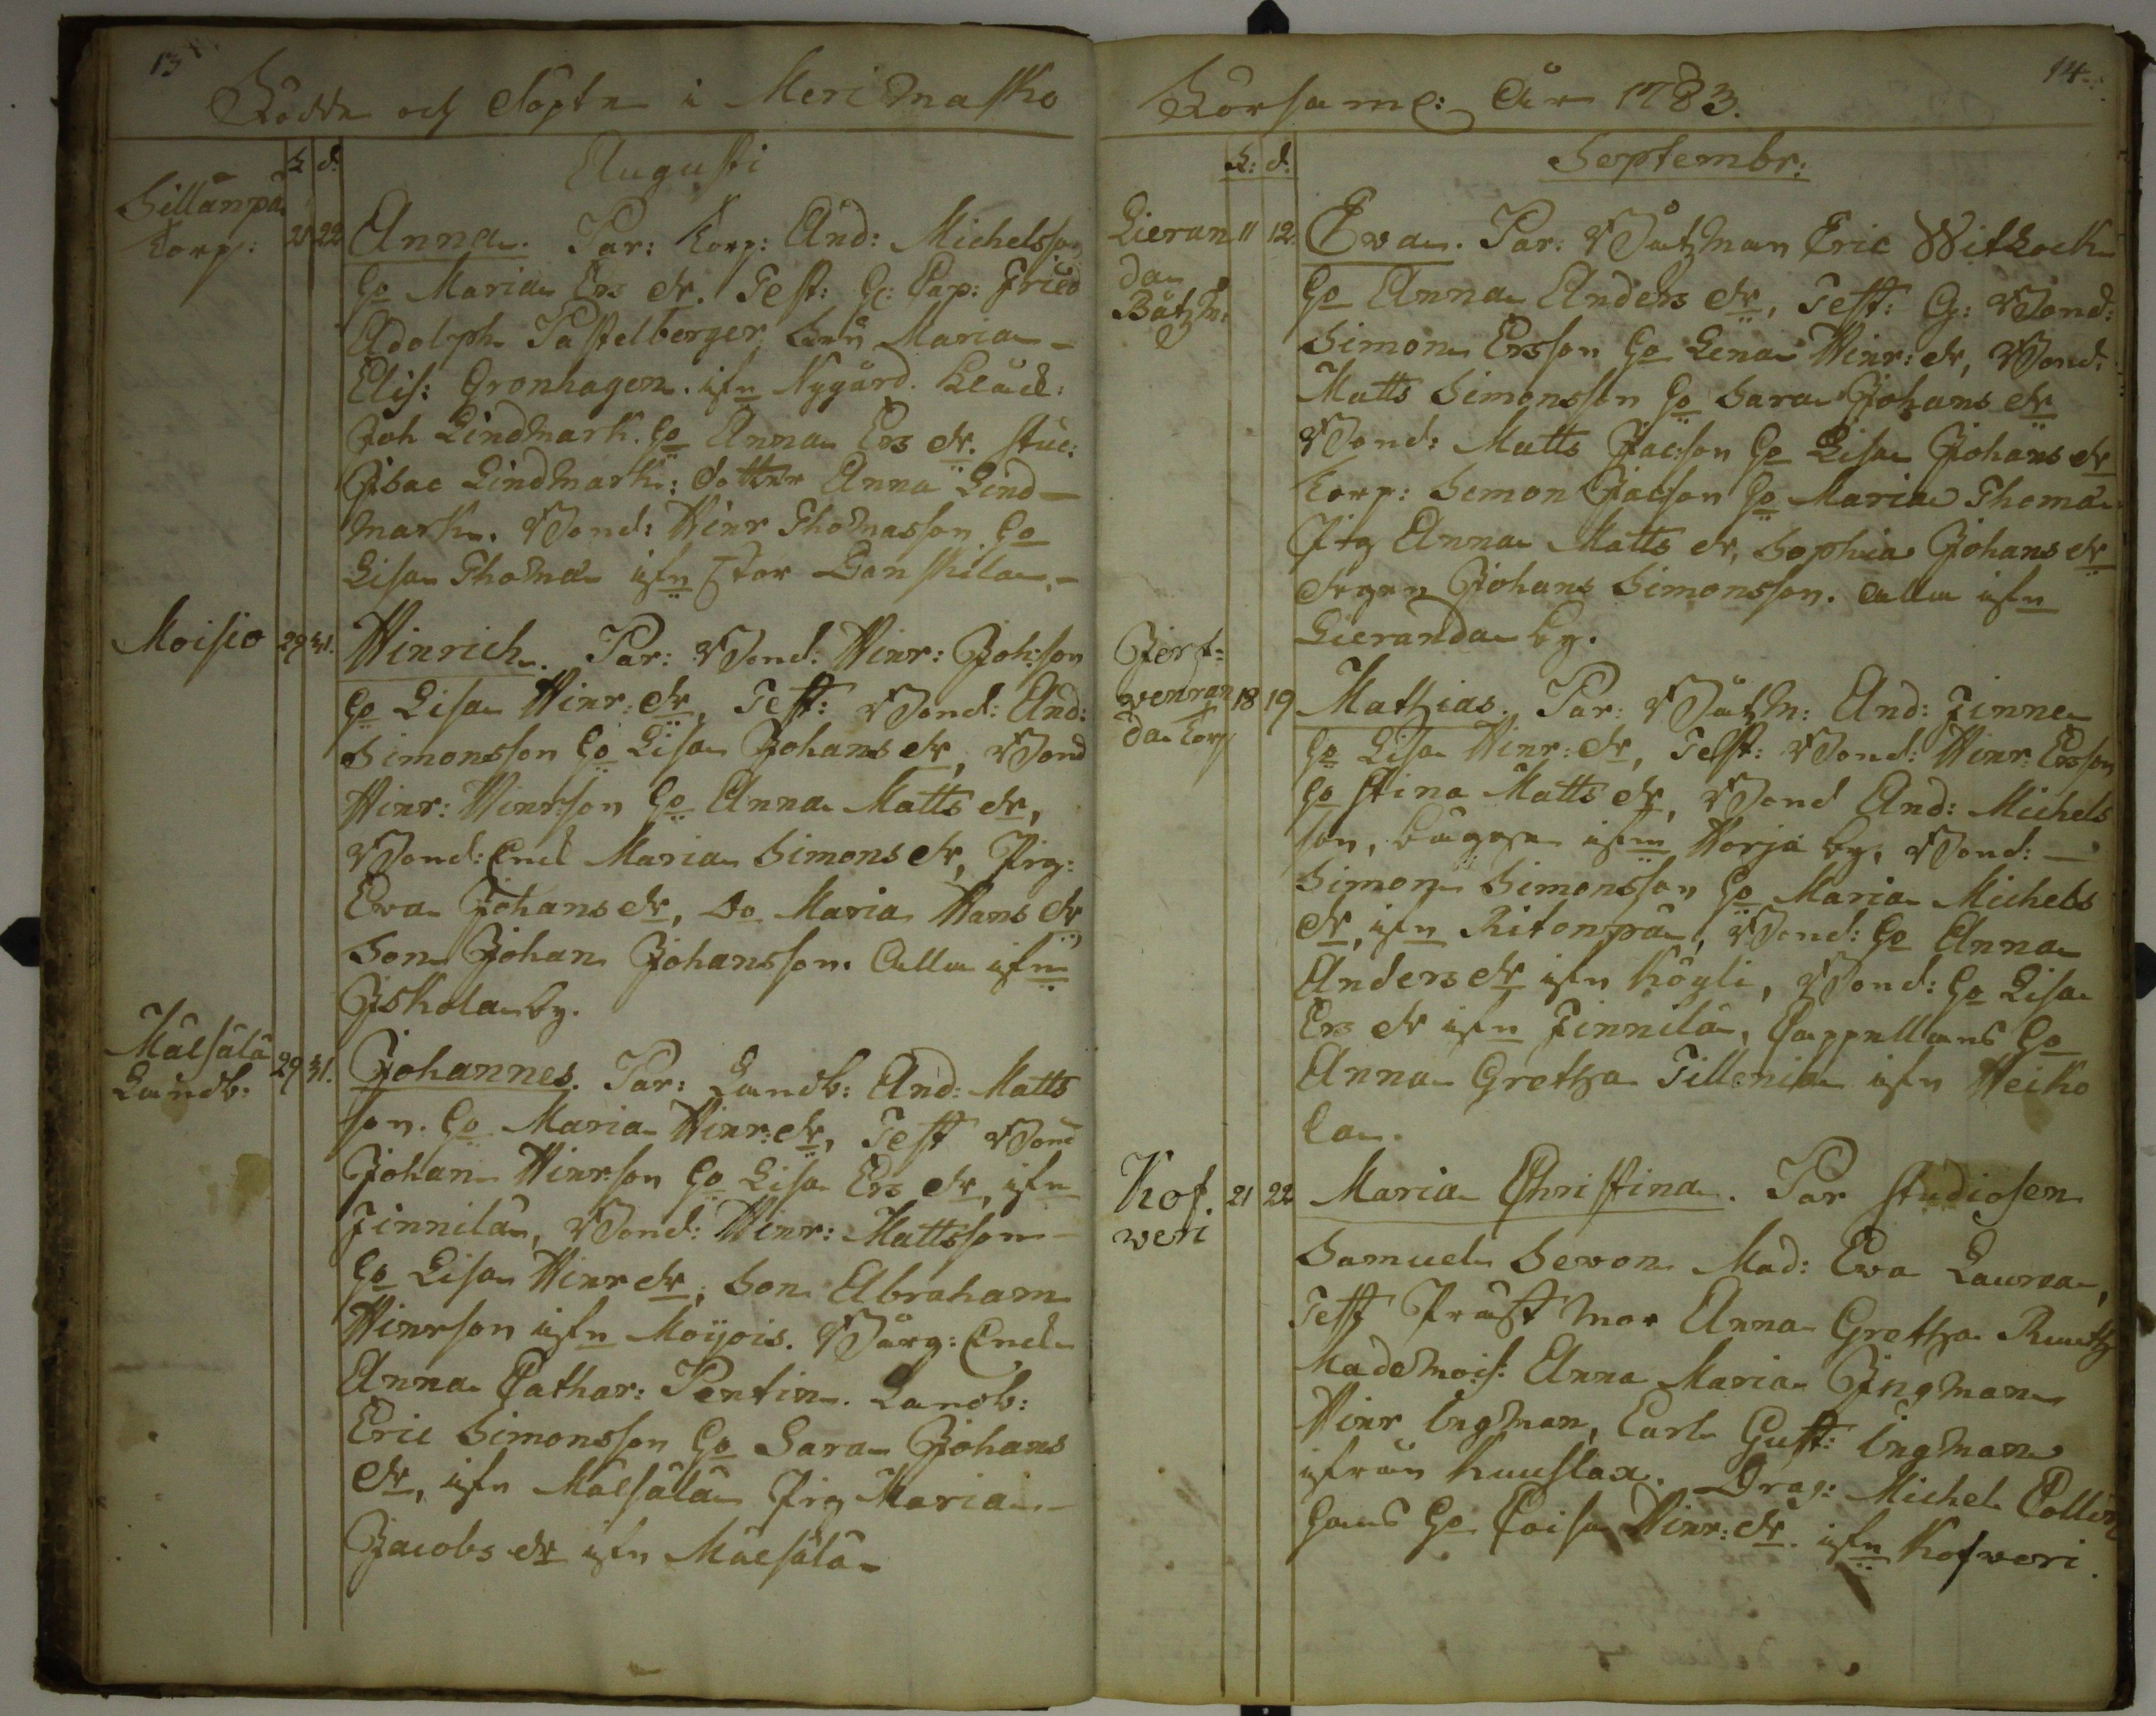 13
Födde och döpte i Meri Masko
F d:
Augusti
Sillanpä
Korp: 21 22 Anna. Par: Korp: And: Michelsson
Ho Maria Ers dr. Test: H: Cap: Fried
Adolph Pastelberger, Maria
Elis: Gronhagen. ifrn Nygård. Klåck:
Joh Lindmark. Ho Anna Ers dr. stud:
Isac Lindmark: dotter Anna Lind-
mark. Bond: Hinr Thomasson Ho
Lisa Thomæ ifrn Stor
Moisio 29 31. Hinrich. Par: Bond: Hinr: Joh:son
Ho Lisa Hinr: dr, Test: Bond: And:
Simonsson Ho Lisa Johans dr, Bond
Hinr: Hinrson Ho Anna Matts dr,
Bond: Enck Maria Simons dr, Pig:
Eva Johans dr, do Maria Hans dr
Son Johan Johansson. Alla ifrn
Iskola by.
Mälsälä
Landb: 29 31. Johannes. Par: Landb: And: Matts
son. Ho Maria Hinr: dr, Test Bond
Johan Hinrson Ho Lisa Ers dr, ifrn
Finnilä, Bond: Hinr: Mattsson
Ho Lisa Hinr dr; Son Abraham
Hinrson ifrn Moijois. Borg: Enck
Anna Cathar: Pentin. Landb:
Eric Simonsson Ho Sara Johans
dr, ifrn Mälsälä Pig Maria
Jacobs dr ifrn Mälsälä
14
Församl: År 1783.
F: d:
Septembr:
Lieran
da
Båtzm: 11 12. Eva. Par: Båtzman Eric Witkock
Ho Anna Anders dr, Test: H: Bond:
Simon Ersson Ho Lena Hinr: dr, Bond:
Matts Simonsson Ho Sara Johans dr
Bond: Matts Jacson Ho Lisa Johans dr
Korp: Simon Jacson Ho Maria Thomæ
Pig Anna Matts dr, Sophia Johans dr
drgen Johans Simonsson. Alla ifrn
Lieranda by.
wenran
da Torp 18 19 Mathias. Par: Båtzm: And: Finne
Ho Lisa Hinr: dr, Test: Bond: Hinr: Ersson
Ho Stina Matts dr, Bond And: Michels
son, ifrn Korja by, Bond:
Simon Simonsson Ho Maria Michels
dr, ifrn Ritonpä, Bond: Ho Anna
Anders dr ifrn Köyli, Bond: Ho Lisa
Ers dr ifrn Finnilä, Cappellans Ho
Anna Gretha Tillenia ifrn Heiko
la.
Kof.
weri 21 22 Maria Christina. Par Studiosen
Samuel Sevon Mad: Eva Laurea,
Test Prost mor Anna Gretha
Mademois: Anna Maria Ingman
Hinr Ingman, Carl Gust: Ingman
ifrån Kuuslax. Drag: Michel
Hans Ho Hinr: dr. ifrn Kofweri.